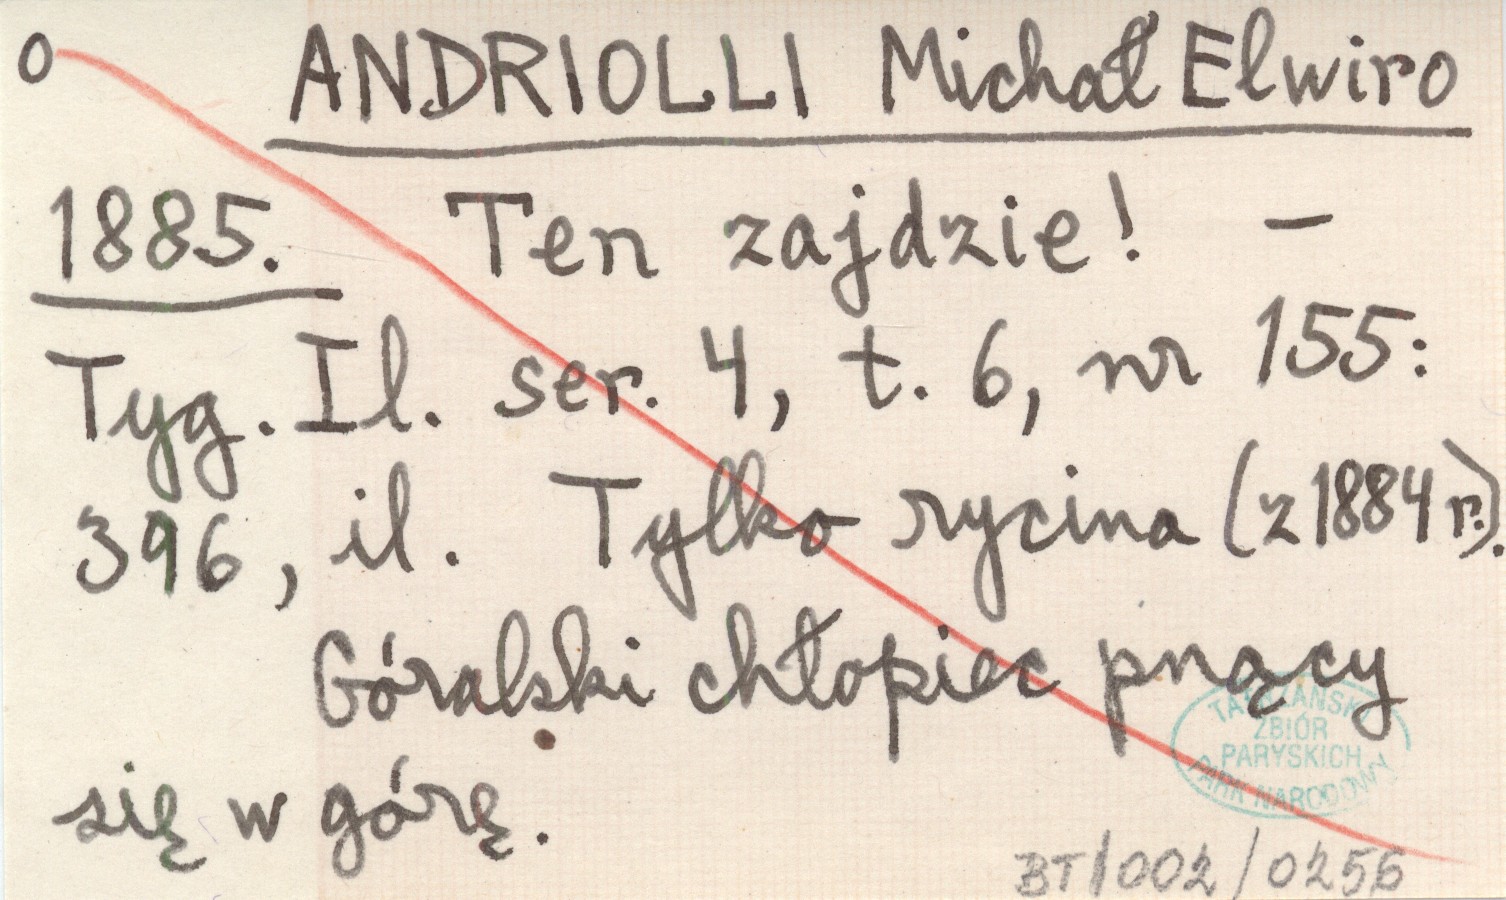 o ANDRIOLLI Michał Elwiro
1885. Ten zajdzie! –
Tyg. Il. ser. 4, t. 6, nr 155:
396, il. Tylko rycina (z 1884 r.).
Góralski chłopiec pnący
się w górę.
TATRZAŃSKI
ZBIÓR
PARYSKICH
PARK NARODOWY
BT/002/0256